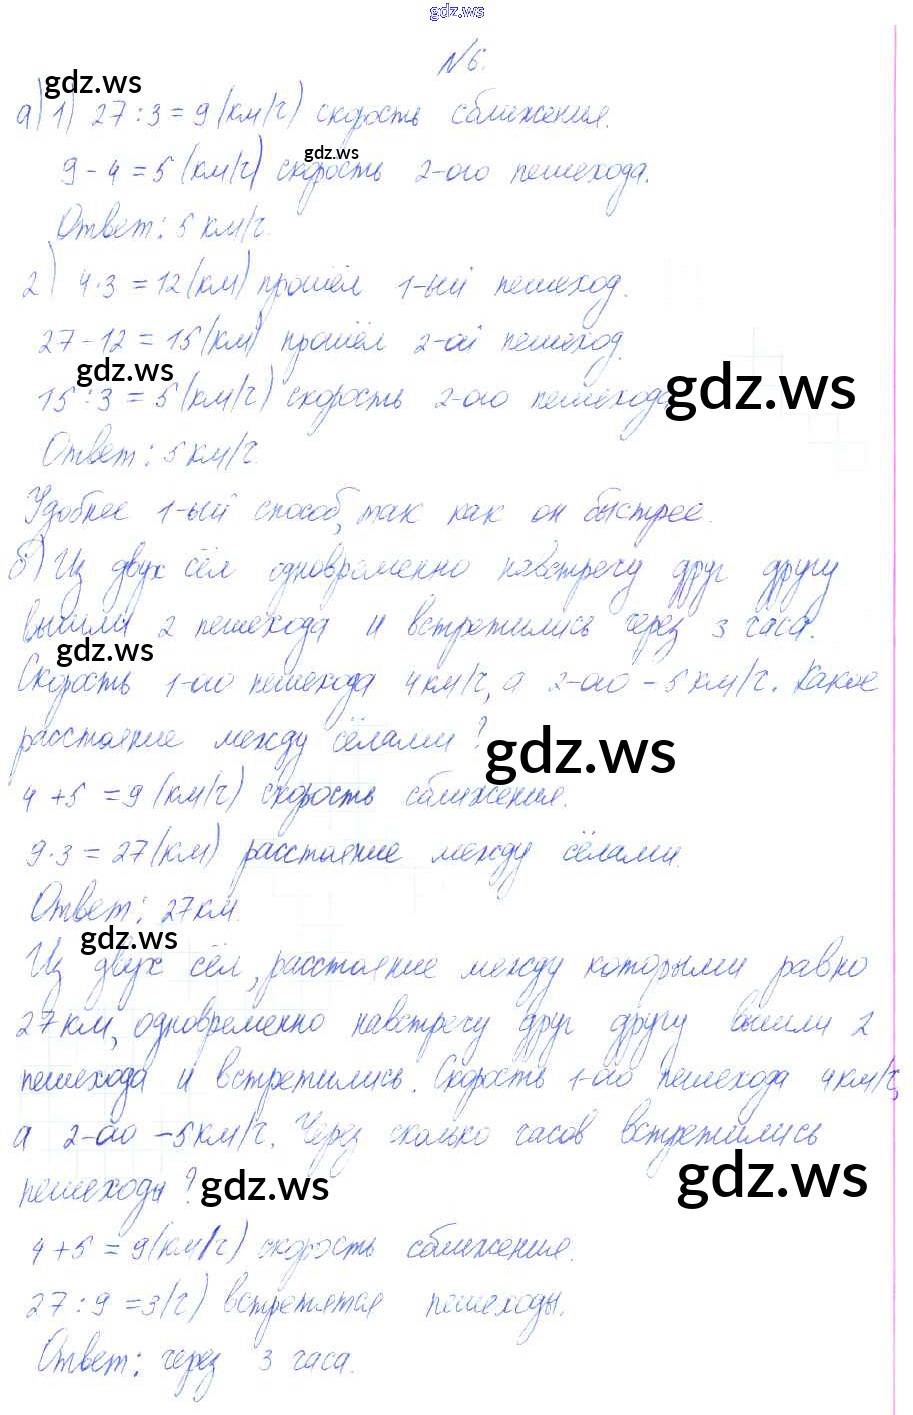 gdz.ws
№6.
gdz.ws
а) 1) 27 : 3 = 9 (км/ч) скорость сближения.
gdz.ws
9 - 4 = 5 (км/ч) скорость 2-ого пешехода.
Ответ: 5 км/ч.
2) 4·3 = 12 (км) прошёл 1-ый пешеход.
27 - 12 = 15 (км) прошёл 2-ой пешеход.
gdz.ws
gdz.ws
15 : 3 = 5 (км/ч) скорость 2-ого пешехода
Ответ: 5 км/ч.
Удобнее 1-ый способ, так как он быстрее.
б) Из двух сёл одновременно навстречу друг другу
вышли 2 пешехода и встретились через 3 часа.
gdz.ws
Скорость 1-ого пешехода 4 км/ч, а 2-ого - 5 км/ч. Какое
расстояние между сёлами?
gdz.ws
4 + 5 = 9 (км/ч) скорость сближения.
9·3 = 27 (км) расстояние между сёлами.
Ответ: 27 км.
gdz.ws
Из двух сёл, расстояние между которыми равно
27 км, одновременно навстречу друг другу вышли 2
пешехода и встретились. Скорость 1-ого пешехода 4 км/ч,
а 2-ого - 5 км/ч. Через сколько часов встретились
gdz.ws
пешеходы?
gdz.ws
4 + 5 = 9 (км/ч) скорость сближения.
27 : 9 = 3 (ч) встретятся пешеходы.
Ответ: через 3 часа.